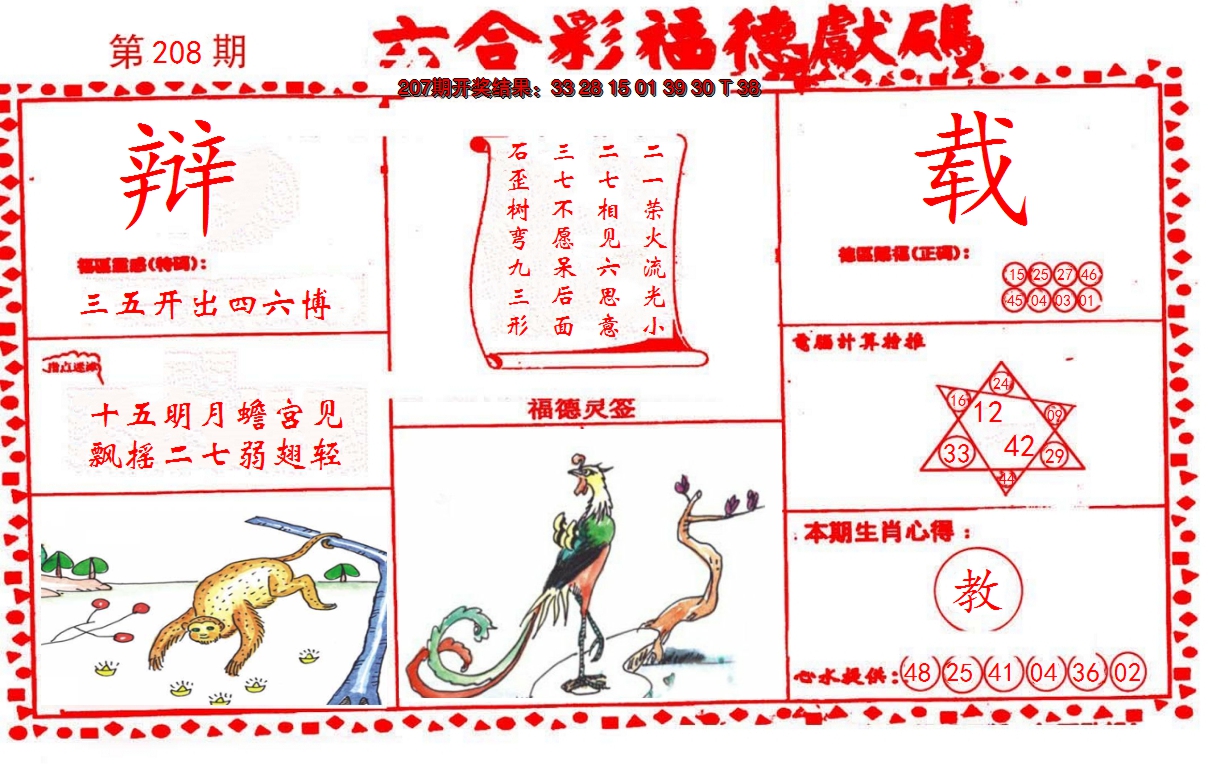 第 208 期
六合彩福德獻碼
207期开奖结果：33 28 15 01 39 30 T 38
辩
福區靈感(特碼)：
三五开出四六博
指点迷津
十五明月蟾宫见
飘摇二七弱翅轻
二一荣火流光小
二七相见六思意
三七不愿呆后面
石歪树弯九三形
福德灵签
载
德區賜福(正碼)：
15 25 27 46
45 04 03 01
電腦計算檢推
24
16 12 09
33 42 29
44
本期生肖心得：
教
心水提供：48 25 41 04 36 02